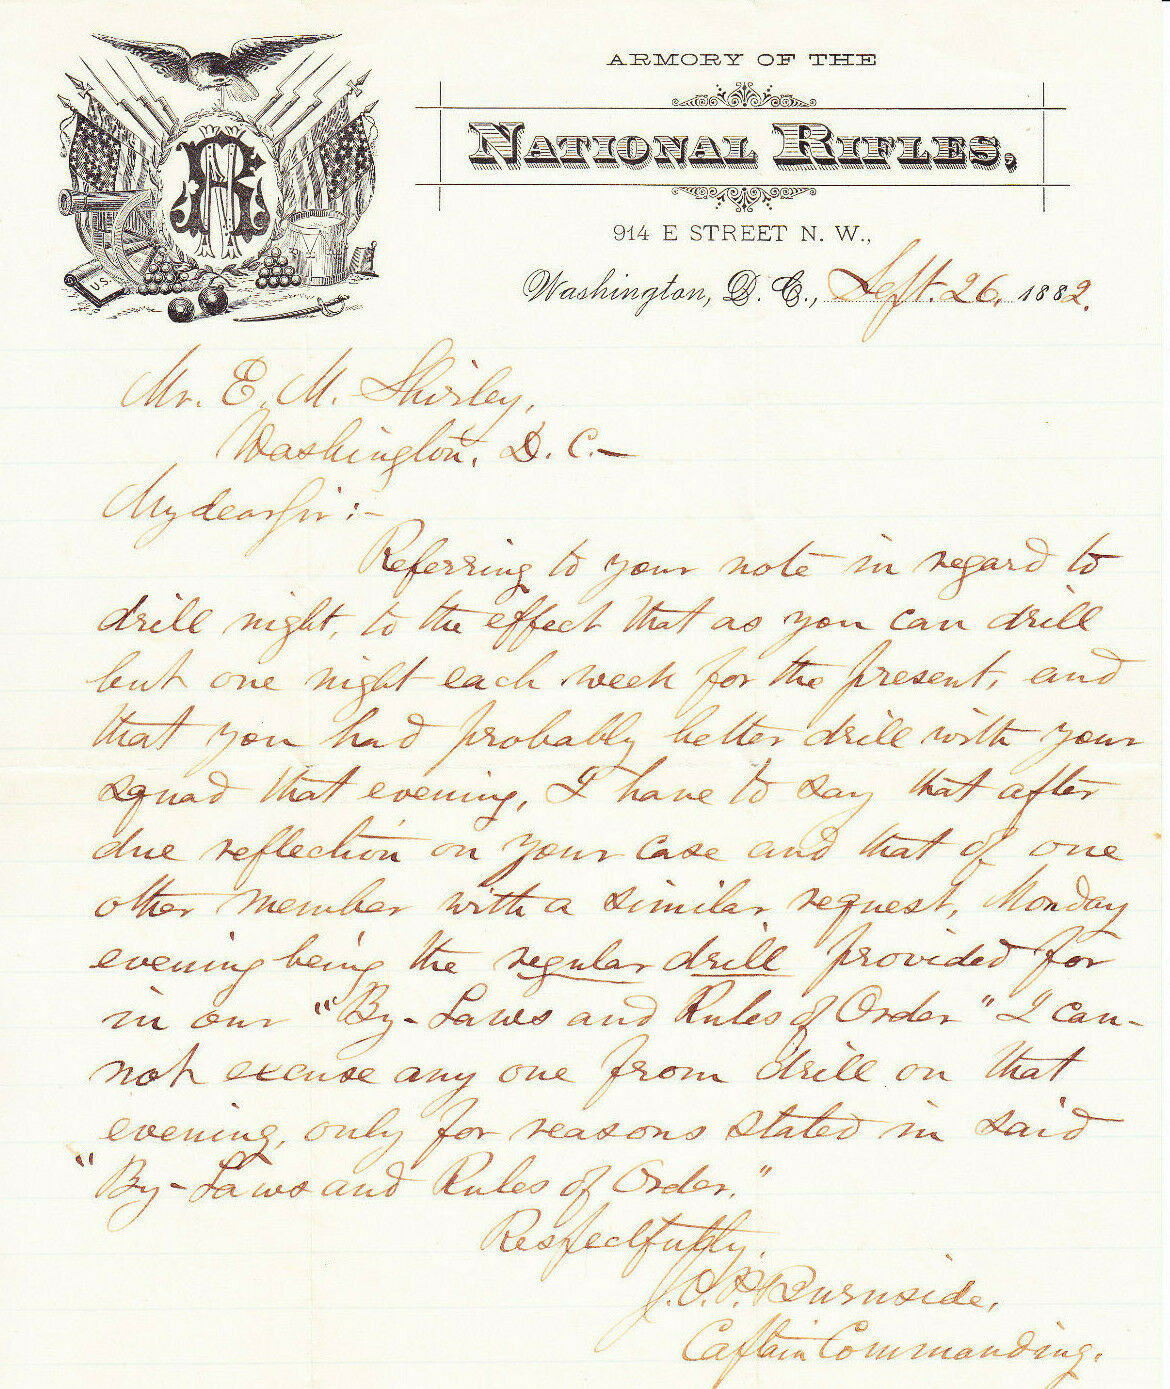 ARMORY OF THE
NATIONAL RIFLES,
914 E STREET N. W.,
Washington, D. C., Sept. 26, 1882.
NR
U.S.
Mr. E. M. Shirley,
Washington, D. C.—
My dear Sir :-
Referring to your note in regard to
drill night, to the effect that as you can drill
but one night each week for the present, and
that you had probably better drill with your
squad that evening, I have to say that after
due reflection on your case and that of one
other member with a similar request, Monday
evening being the regular drill provided for
in our "By-Laws and Rules of Order" I can-
not excuse any one from drill on that
evening, only for reasons stated in said
"By-Laws and Rules of Order."
Respectfully,
J. O. P. Burnside,
Captain Commanding.